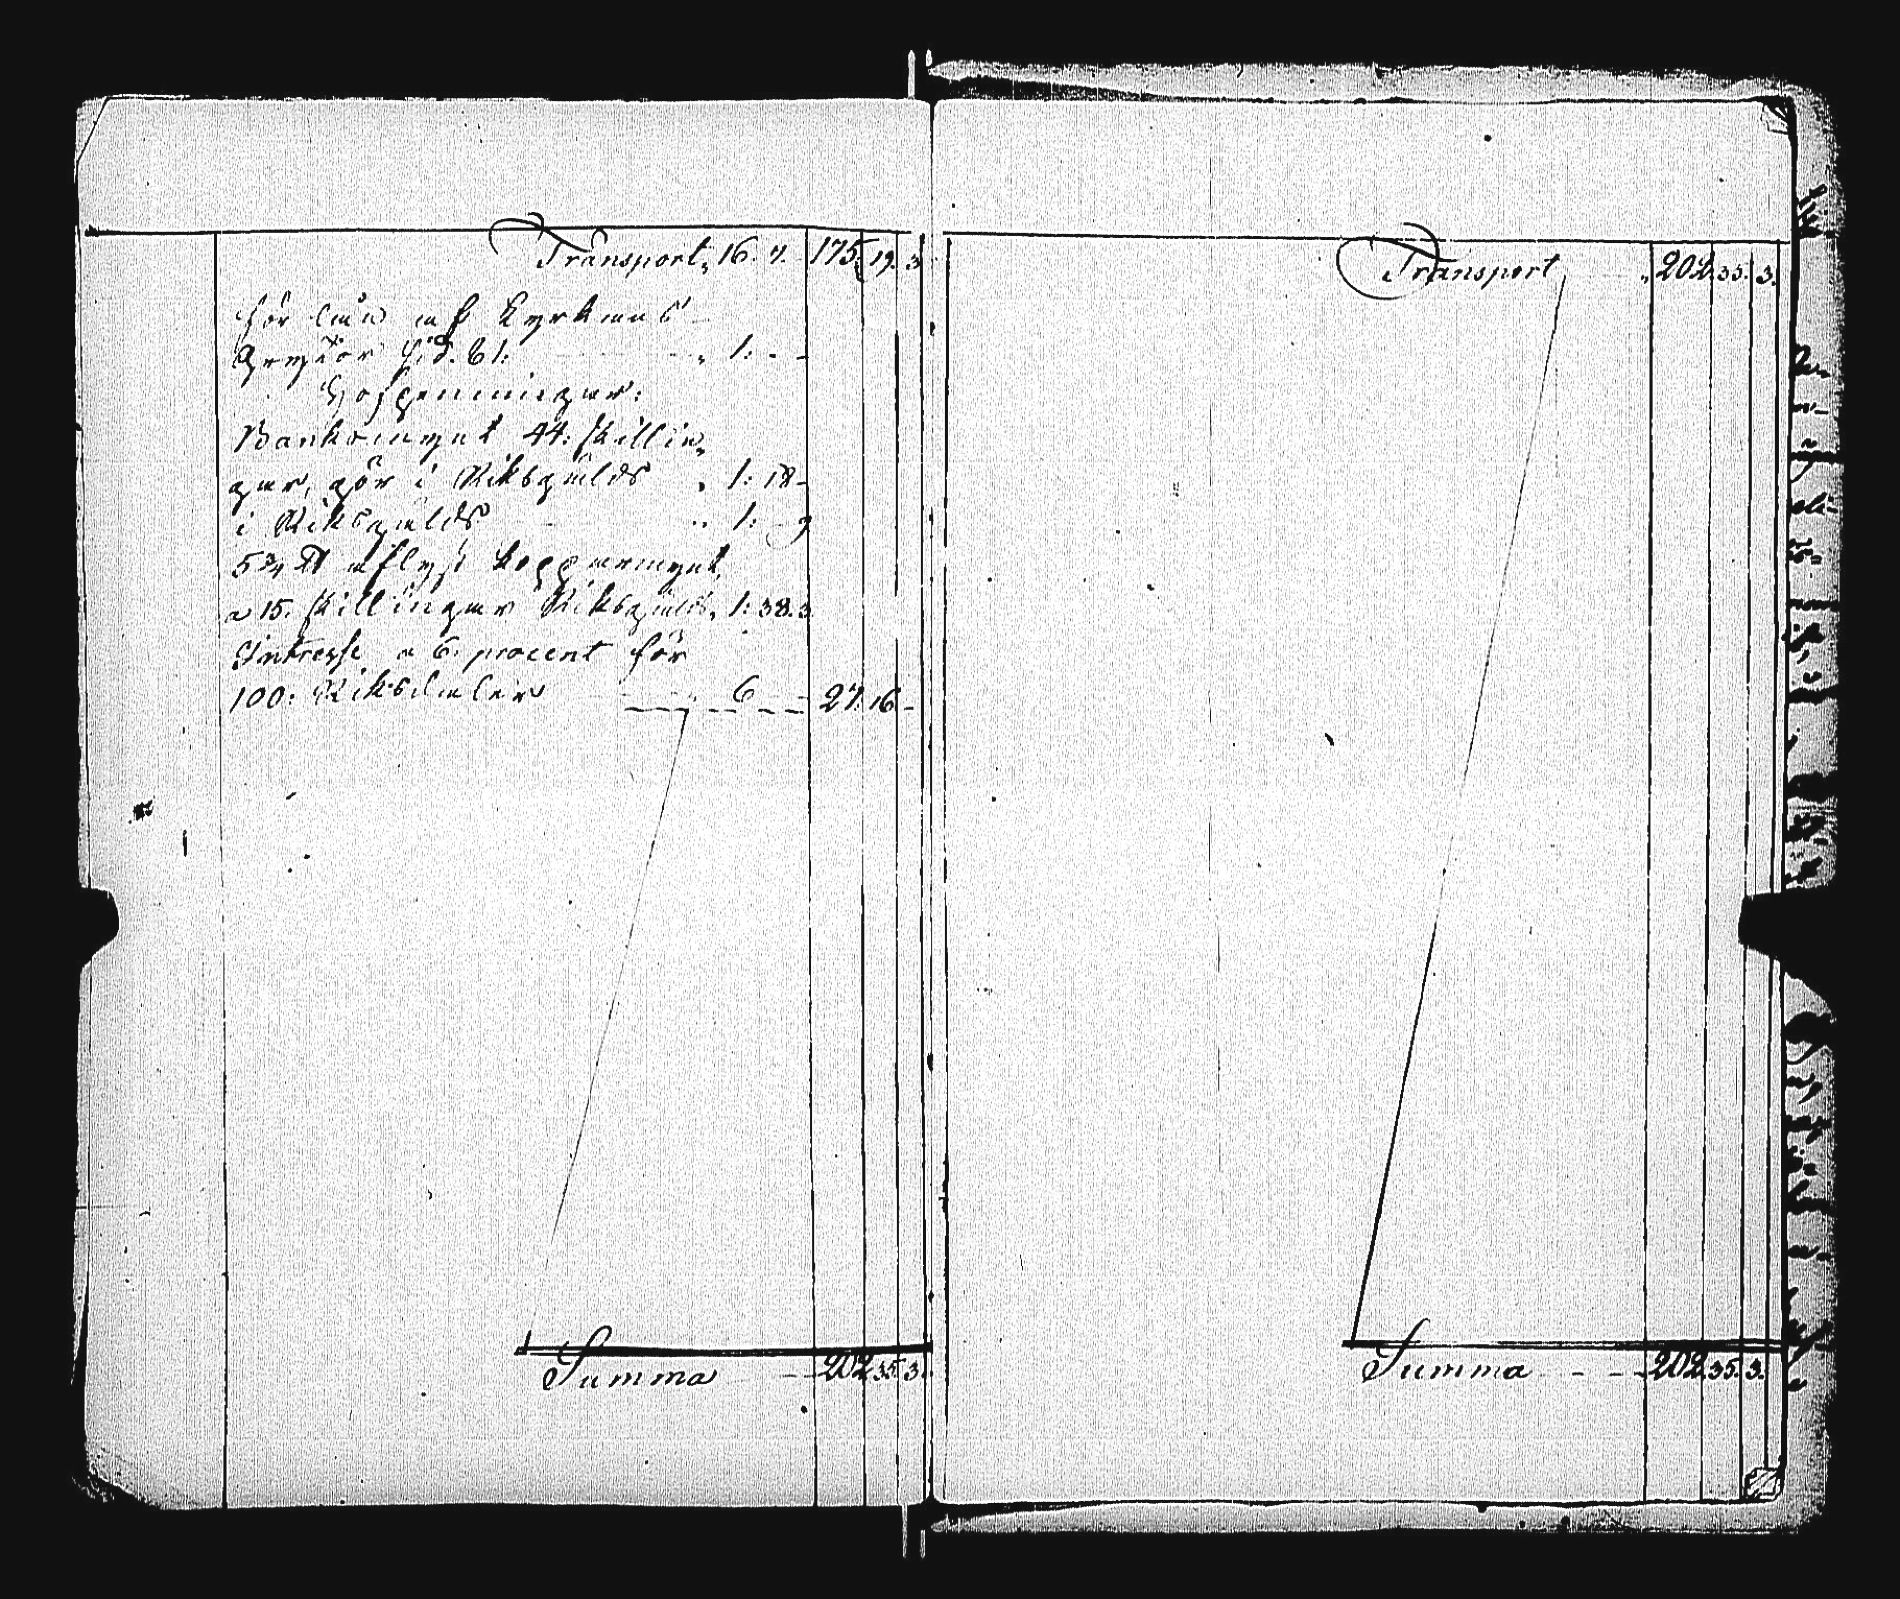 Transport, 16. 7. 175. 19. 3
för lån af Kyrkans
1: - -
Bankomynt 44: skillin,
gar, gör i Riksgälds , 1: 18 -
i Riksgälds - - 1: -
5 3/4 ℔ kopparmynt,
a 15. skillingar Riksgälds, 1: 38. 3
Intresse a 6. procent för
100: Riksdaler - 6 - - 27. 16 -
Summa - - 202. 35. 3.
Transport „ 202. 35. 3.
Summa - - - 202. 35. 3.